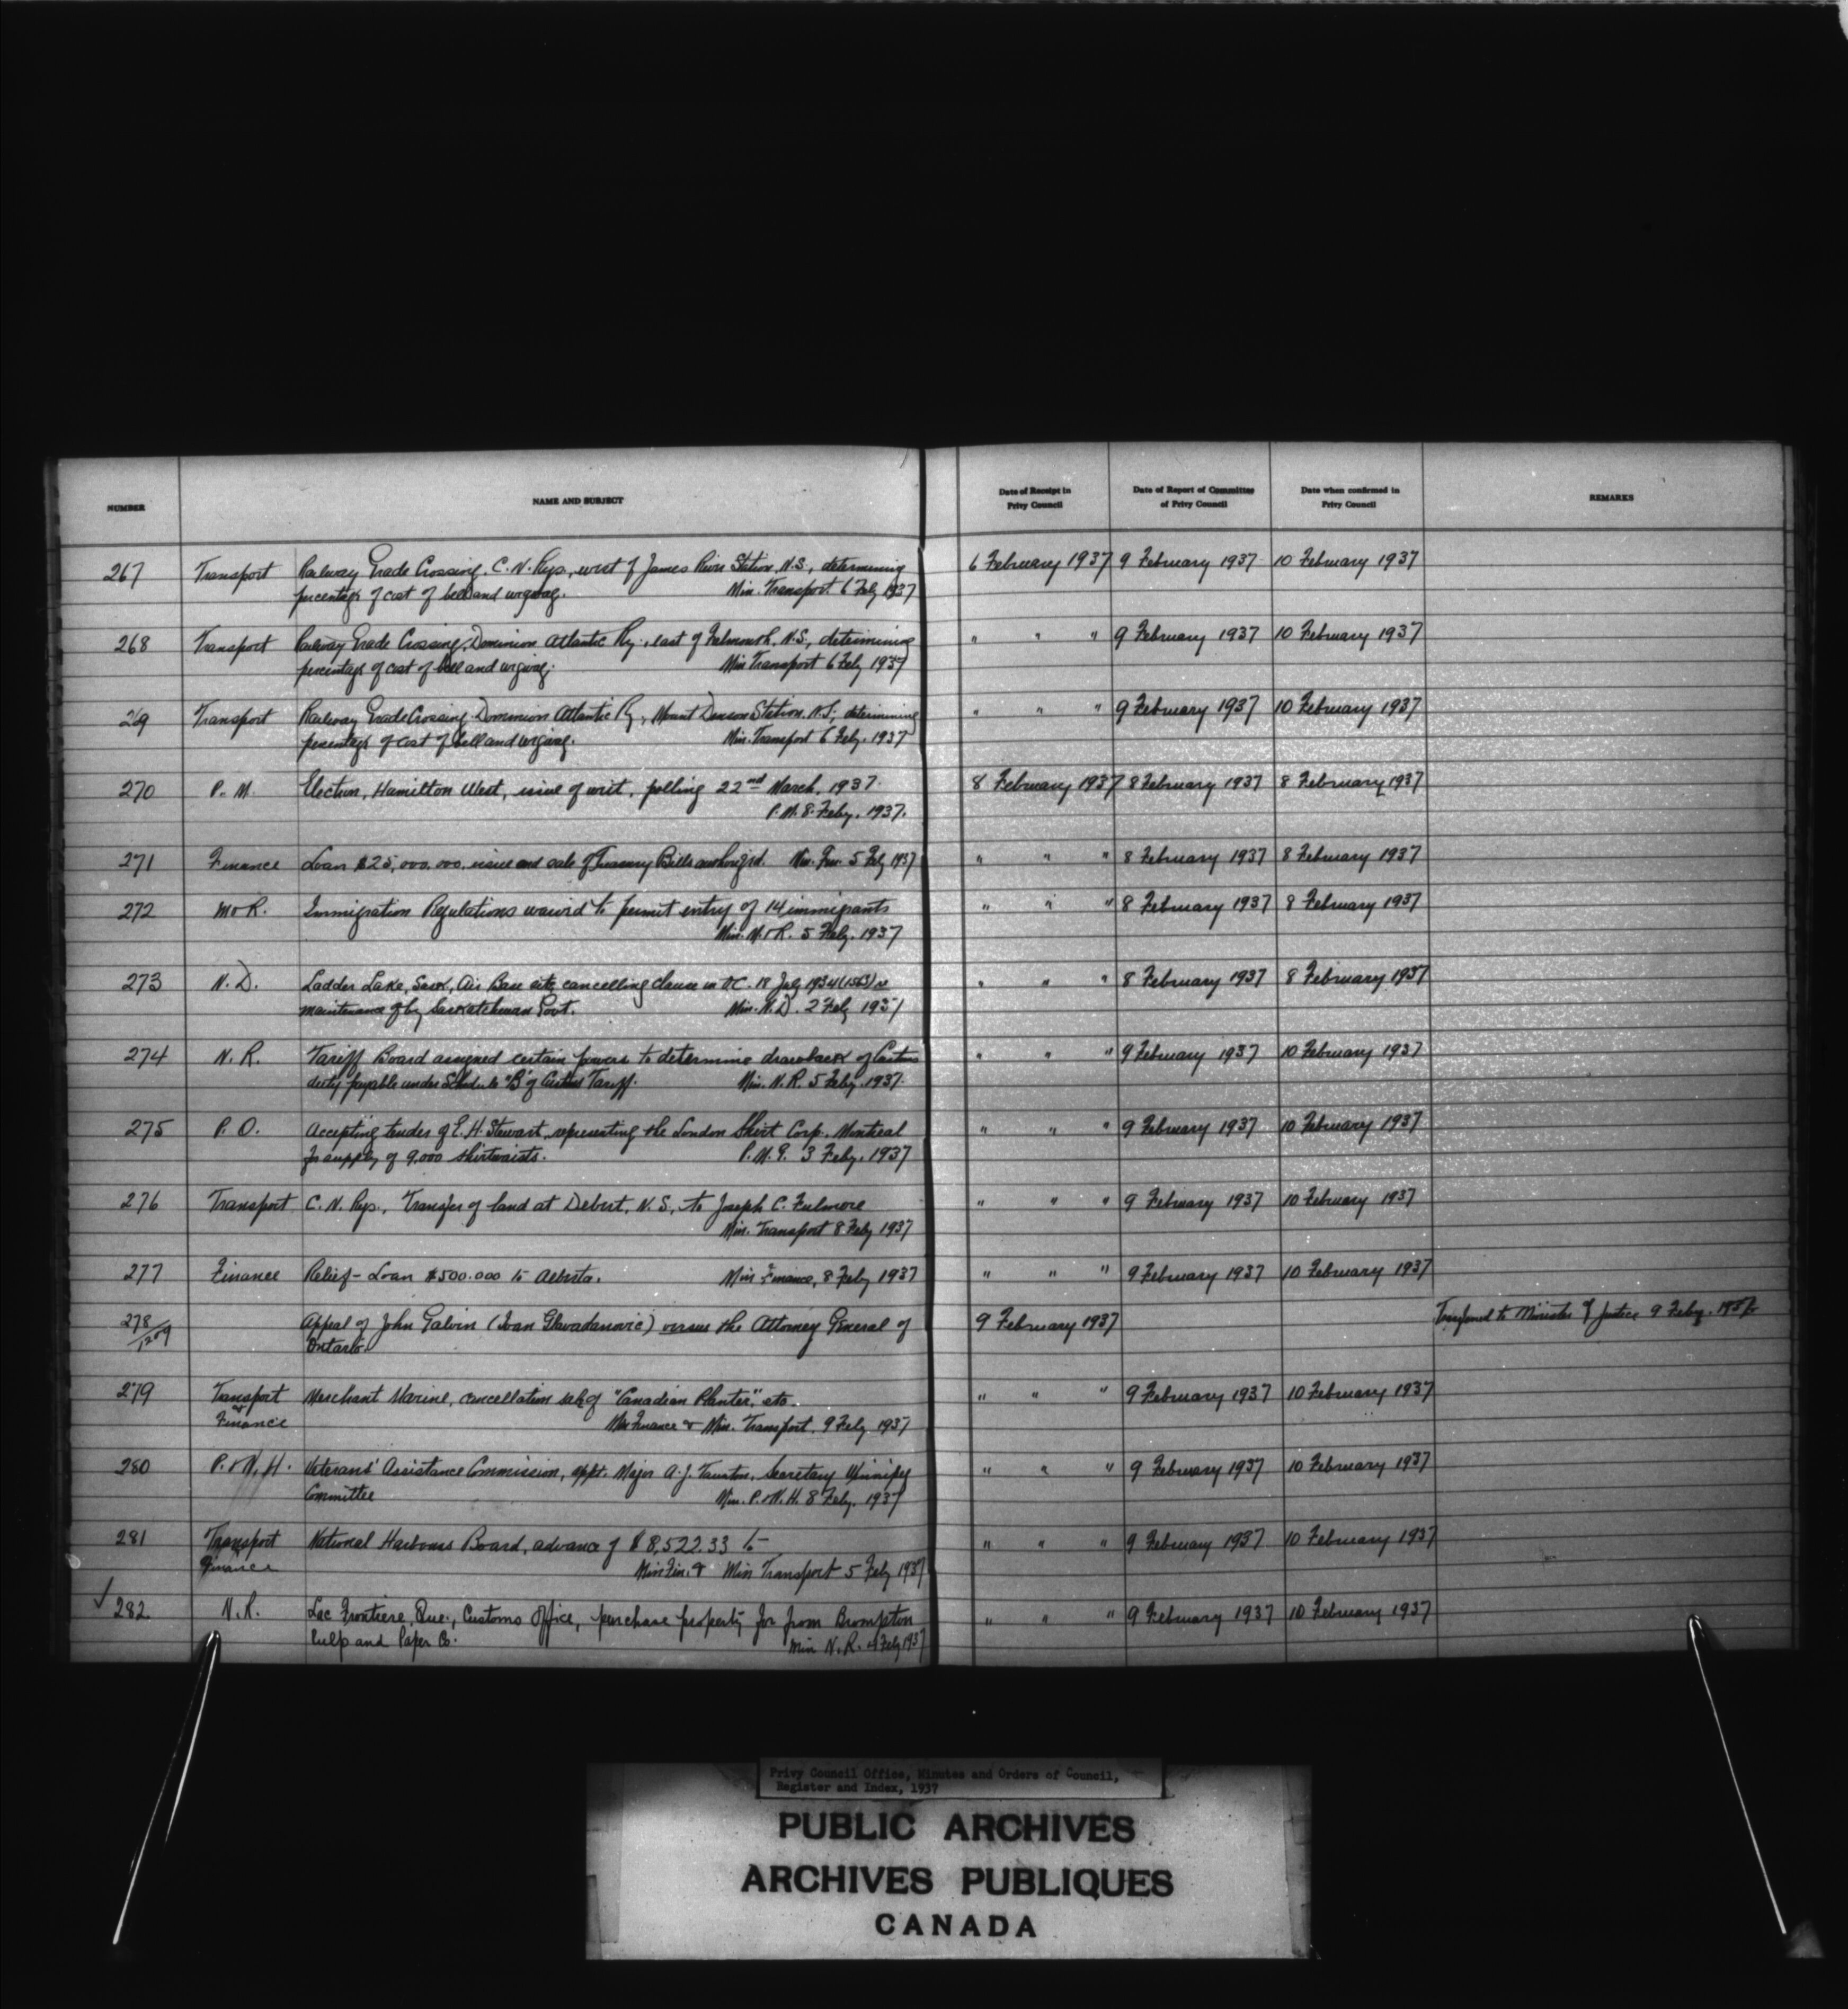 NUMBER NAME AND SUBJECT Date of Receipt in Privy Council Date of Report of Committee of Privy Council Date when confirmed in Privy Council REMARKS
267 Transport Railway Grade Crossing, C.N. Rys., west of James River Station, N.S., determining 6 February 1937 9 February 1937 10 February 1937
percentage of cost of bell and wigwag. Min. Transport 6 Feby 1937
268 Transport Railway Grade Crossing, Dominion Atlantic Ry., east of Falmouth, N.S., determining " " " 9 February 1937 10 February 1937
percentage of cost of bell and wigwag. Min Transport 6 Feby 1937
269 Transport Railway Grade Crossing Dominion Atlantic Ry, Mount Denson Station N.S., determining " " " 9 February 1937 10 February 1937
percentage of cost of bell and wigwag. Min. Transport 6 Feby. 1937
270 P.M. Election, Hamilton West, issue of writ, polling 22nd March, 1937. 8 February 1937 8 February 1937 8 February 1937
P.M. 8 Feby. 1937.
271 Finance Loan $25,000,000, issue and sale of Treasury Bills authorized. Min. Fin. 5 Feby 1937 " " " 8 February 1937 8 February 1937
272 M & R. Immigration Regulations waived to permit entry of 14 immigrants " " " 8 February 1937 8 February 1937
Min. M. & R. 5 Feby. 1937
273 N.D. Ladder Lake, Sask, Air Base site, cancelling clause in O.C. 18 July 1934 (1563) re " " " 8 February 1937 8 February 1937
maintenance of by Saskatchewan Govt. Min. N.D. 2 Feby 1937
274 N.R. Tariff Board assigned certain powers to determine drawback of Customs " " " 9 February 1937 10 February 1937
duty payable under Sched. to "B" of Customs Tariff. Min. N.R. 5 Feby. 1937.
275 P.O. Accepting tender of E.H. Stewart, representing the London Shirt Corp. Montreal " " " 9 February 1937 10 February 1937
for supply of 9,000 shirtwaists. P.M.G. 3 Feby. 1937
276 Transport C.N. Rys., Transfer of land at Debert, N.S., to Joseph C. Fulmore " " " 9 February 1937 10 February 1937
Min. Transport 8 Feby 1937
277 Finance Relief - Loan $500.000 to Alberta. Min Finance, 8 Feby 1937 " " " 9 February 1937 10 February 1937
278/1209 Appeal of John Galvin (Ivan Glavadanovic) versus the Attorney General of 9 February 1937 Transferred to Minister of Justice 9 Feby. 1937
Ontario.
279 Transport & Finance Merchant Marine, cancellation sale of "Canadian Planter", etc. " " " 9 February 1937 10 February 1937
Min Finance & Min. Transport 9 Feby 1937
280 P. & N.H. Veterans' Assistance Commission, appt. Major A.J. Taunton, Secretary Winnipeg " " " 9 February 1937 10 February 1937
Committee Min. P. & N.H. 8 Feby. 1937
281 Transport & Finance National Harbours Board, advance of $8,522.33 to " " " 9 February 1937 10 February 1937
Min Fin. & Min Transport 5 Feby 1937
✓ 282 N.R. Lac Frontiere, Que., Customs Office, purchase property for from Brompton " " " 9 February 1937 10 February 1937
Pulp and Paper Co. Min N.R. 4 Feby 1937
Privy Council Office, Minutes and Orders of Council,
Register and Index, 1937
PUBLIC ARCHIVES
ARCHIVES PUBLIQUES
CANADA